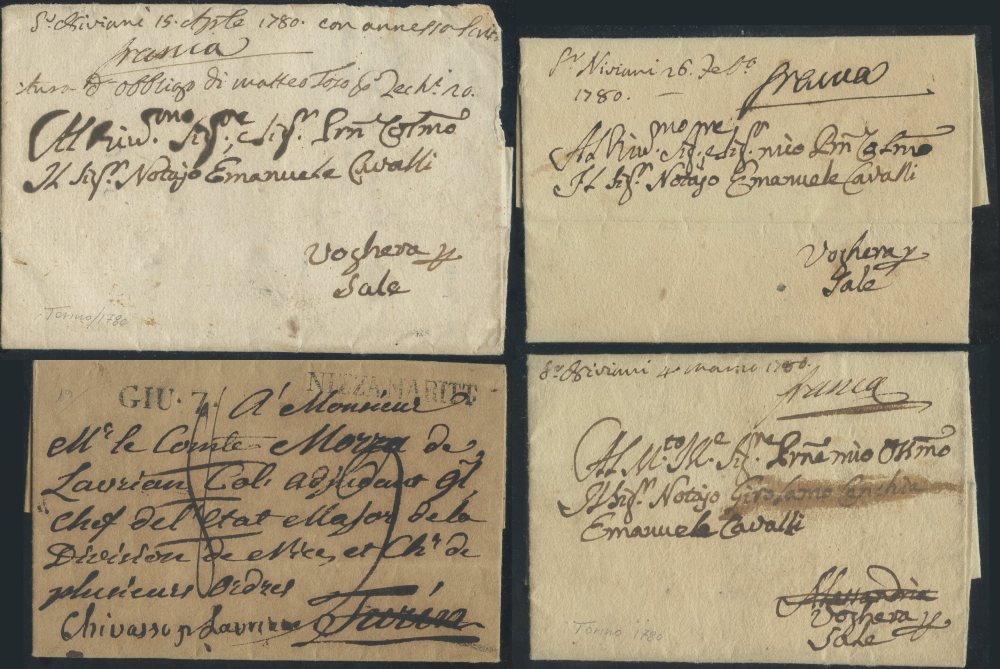 Sr Niviani 15. Aple 1780. con annesso Scrit
franca
tura d'obbligo di matteo Tozo Zechi. 20.
Al Sigr. Prñ Colmo
Il Sigr. Notajo Emanuele Cavalli
Voghera p
Sale
Torino/1780
Sr Niviani 26. Febo
1780.
franca
Al Sigr. mio Prñ Colmo
Il Sigr. Notajo Emanuele Cavalli
Voghera p
Sale
GIU. 7. NIZZA MARITT
A' Monsieur
Mr. le Comte Mozza de
Laurian Col. adjudant gl
chef de l'Etat Major de la
Division de Nice, et Chr. de
plusieurs ordres
Chivasso p Laurian Turin
Sr Niviani 4 marzo 1780.
franca
Al Mto Re. Sigre Prñe mio Colmo
Il Sigr. Notajo Girolamo
Emanuele Cavalli
Alessandria
Voghera p
Sale
Torino 1780